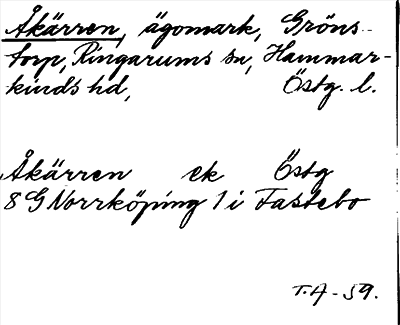 Åkärren, ägomark, Gröns-
torp, Ringarums sn, Hammar-
kind's hd, Östg. l.
Åkärren ek Östg
8G Norrköping 1 i Fastebo
T.A-59.